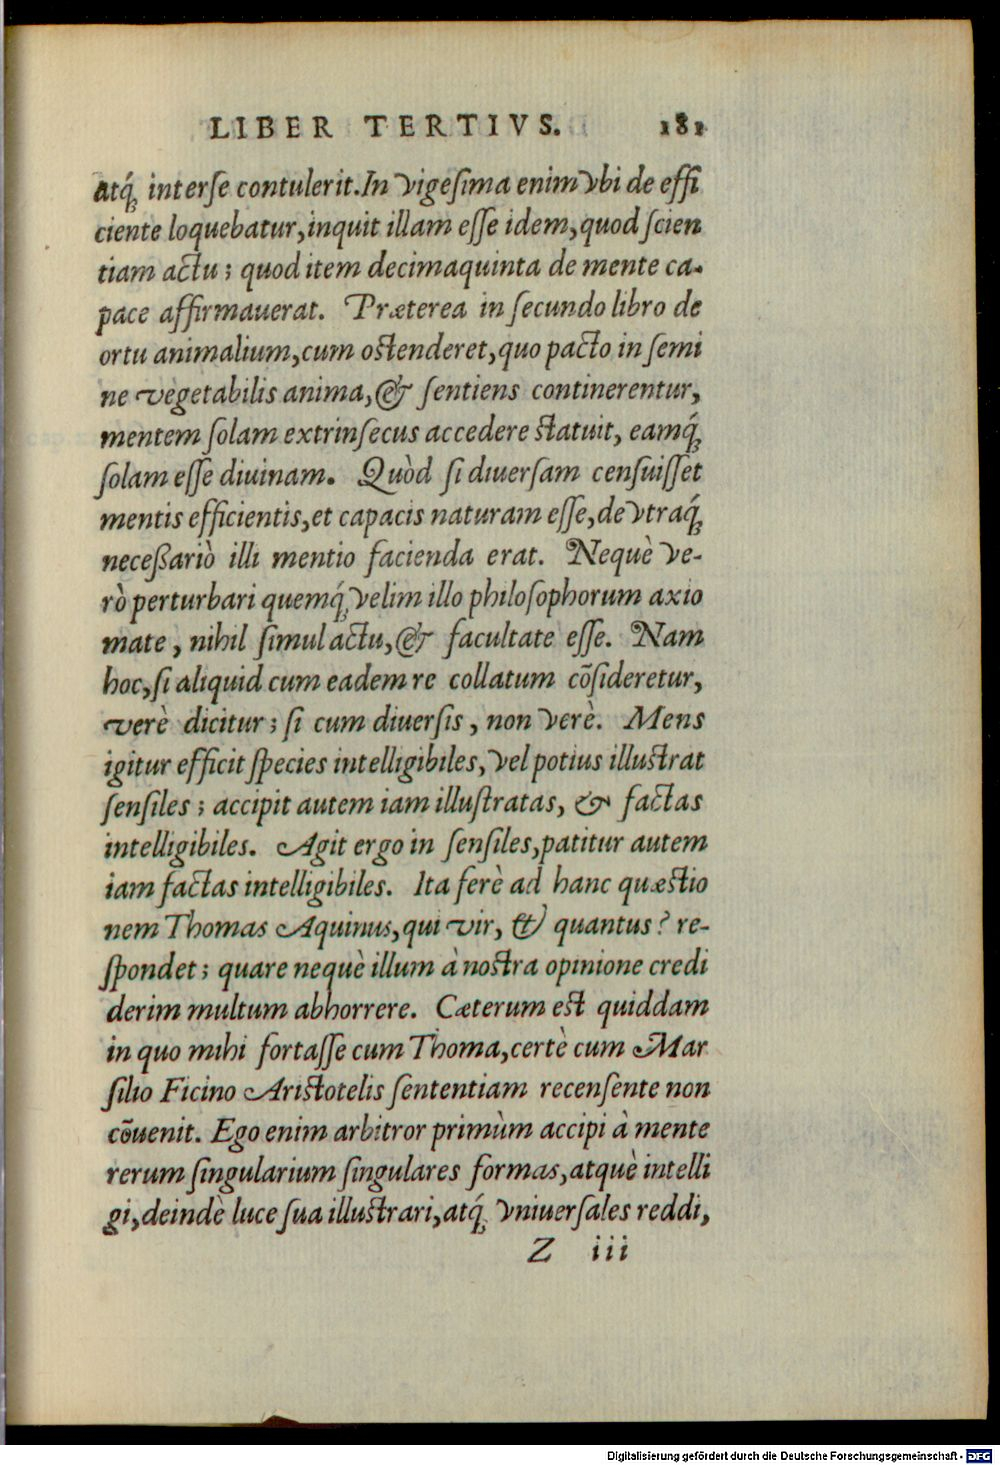 LIBER TERTIVS. 181
atq́ꝫ inter se contulerit. In vigesima enim vbi de effi
ciente loquebatur, inquit illam esse idem, quod scien
tiam actu; quod item decimaquinta de mente ca-
pace affirmauerat. Præterea in secundo libro de
ortu animalium, cum ostenderet, quo pacto in semi
ne vegetabilis anima, & sentiens continerentur,
mentem solam extrinsecus accedere statuit, eamq́ꝫ
solam esse diuinam. Quòd si diuersam censuisset
mentis efficientis, et capacis naturam esse, de vtraq́ꝫ
neceßariò illi mentio facienda erat. Nequè ve-
rò perturbari quemq́ꝫ velim illo philosophorum axio
mate, nihil simul actu, & facultate esse. Nam
hoc, si aliquid cum eadem re collatum cõsideretur,
verè dicitur; si cum diuersis, non verè. Mens
igitur efficit species intelligibiles, vel potius illustrat
sensiles; accipit autem iam illustratas, & factas
intelligibiles. Agit ergo in sensiles, patitur autem
iam factas intelligibiles. Ita ferè ad hanc quæstio
nem Thomas Aquinus, qui vir, & quantus? re-
spondet; quare nequè illum à nostra opinione credi
derim multum abhorrere. Cæterum est quiddam
in quo mihi fortasse cum Thoma, certè cum Mar
silio Ficino Aristotelis sententiam recensente non
cõuenit. Ego enim arbitror primùm accipi à mente
rerum singularium singulares formas, atquè intelli
gi, deindè luce sua illustrari, atq́ꝫ vniuersales reddi,
Z iii
Digitalisierung gefördert durch die Deutsche Forschungsgemeinschaft - DFG